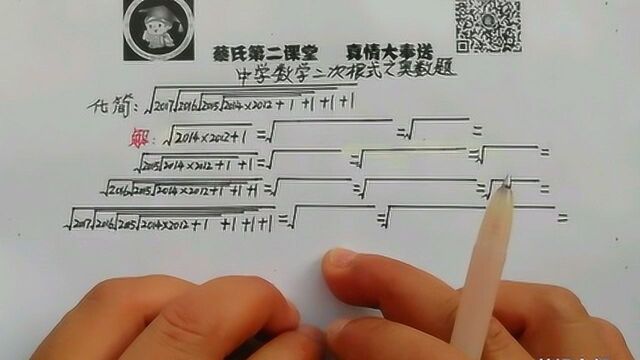 蔡氏第二课堂 真情大奉送
中学数学二次根式之奥数题
化简:√2017√2016√2015√2014×2012+1+1+1+1
解:√2014×2012+1=√ =√ =
√2015√2014×2012+1+1=√ =√ =√ =
√2016√2015√2014×2012+1+1+1=√ =√ =√ =
√2017√2016√2015√2014×2012+1+1+1+1=√ =√ =